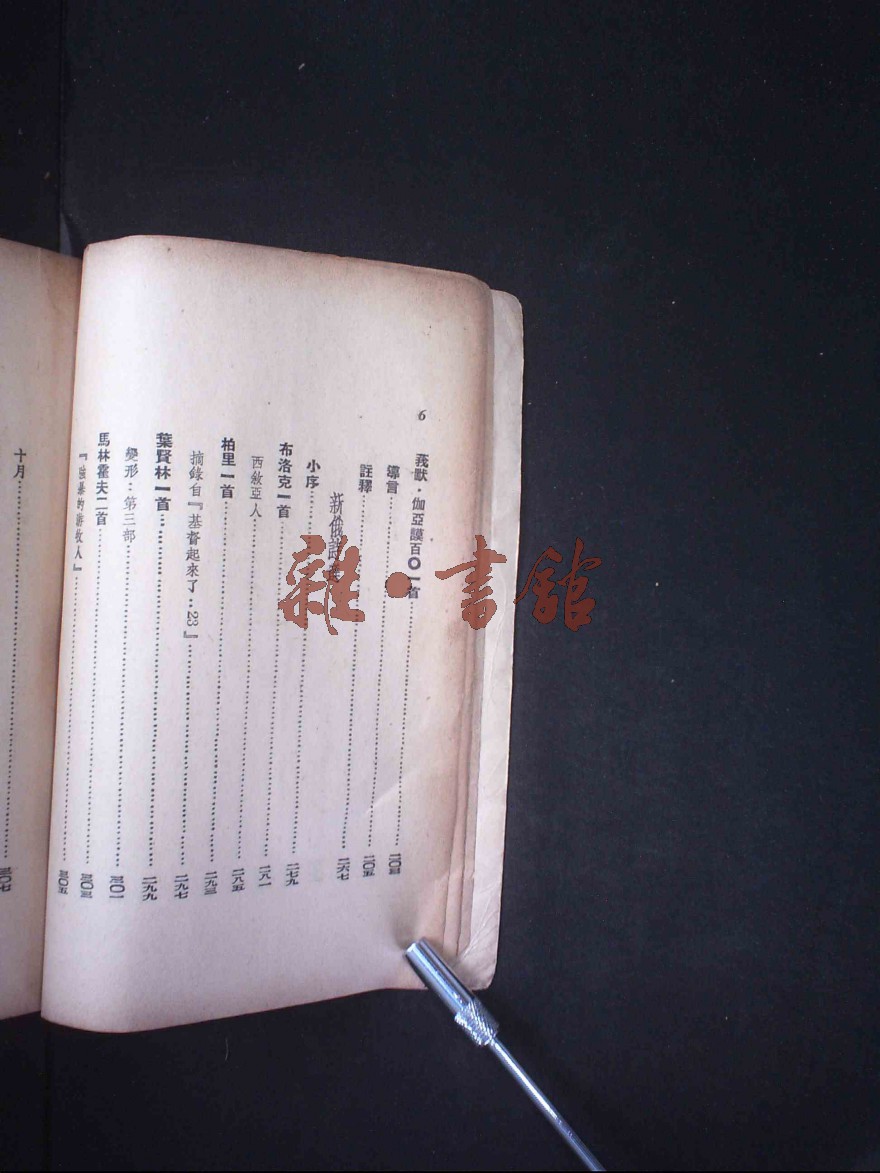 6
莪默・伽亞謨百〇一首……二〇三
導言……二〇五
註釋……二六七
新俄詩選
小序……二七九
布洛克一首……二八一
西敘亞人……二八五
柏里一首……二九三
摘錄自『基督起來了：23』……二九七
葉賢林一首……二九九
變形：第三部……三〇一
馬林霍夫二首……三〇三
『強暴的游牧人』……三〇五
十月……三〇七
雜・書館